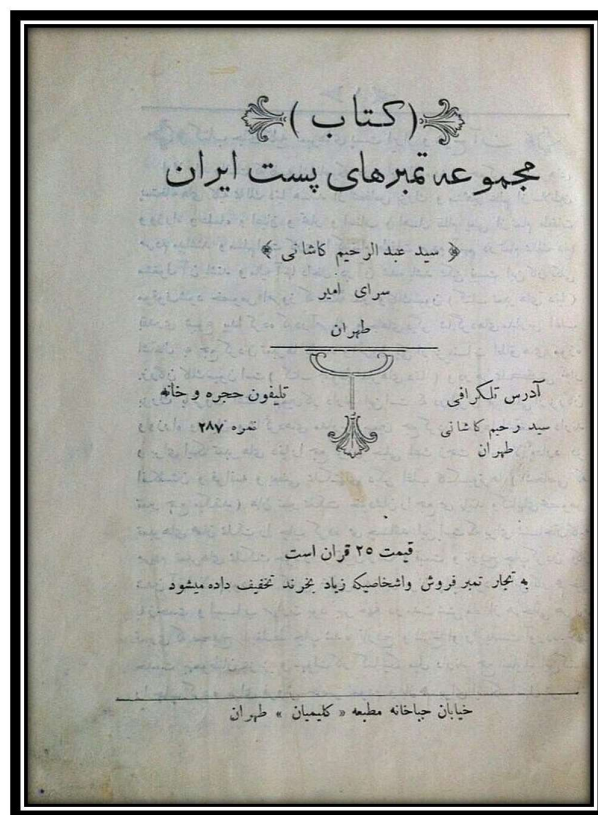 (کتاب)
مجموعه تمبرهای پست ایران
﴿ سید عبدالرحیم کاشانی ﴾
سرای امیر
طهران
آدرس تلگرافی
سید رحیم کاشانی
طهران
تلیفون حجره و خانه
نمره ۲۸۷
قیمت ۲۵ قران است
به تجار تمبر فروش واشخاصیکه زیاد بخرند تخفیف داده میشود
خیابان جباخانه مطبعه « کلیمیان » طهران